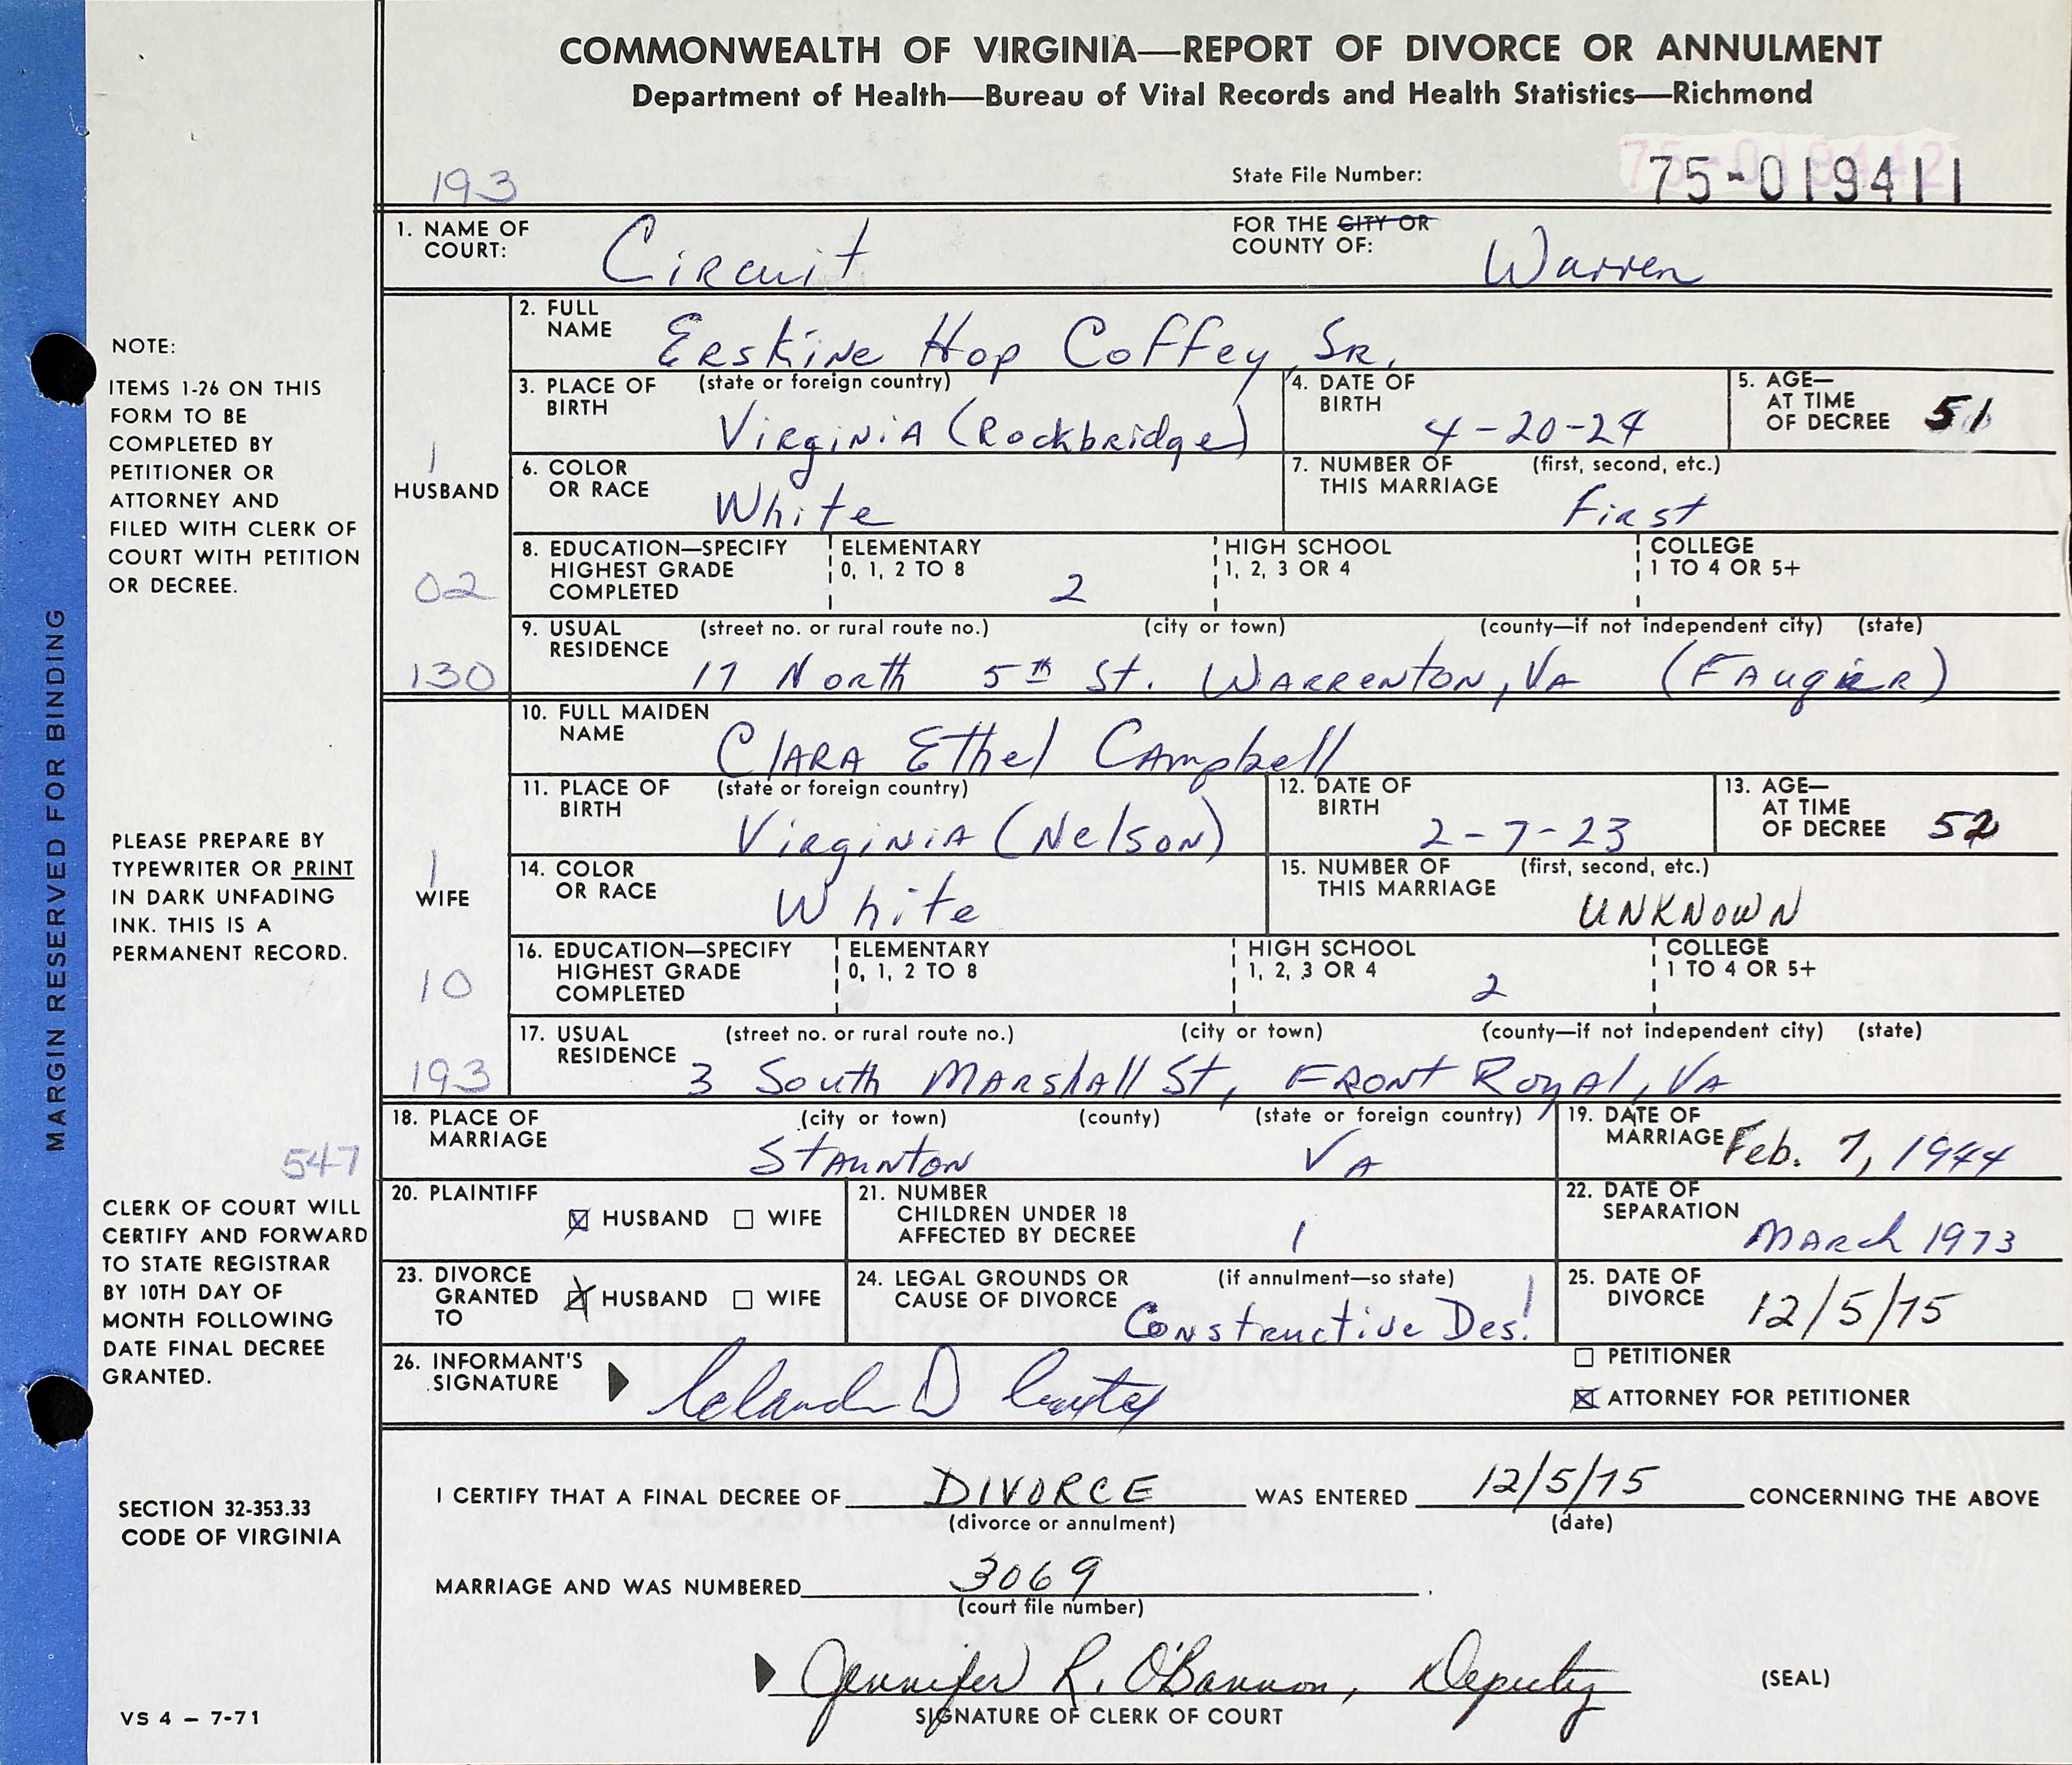 COMMONWEALTH OF VIRGINIA—REPORT OF DIVORCE OR ANNULMENT
Department of Health—Bureau of Vital Records and Health Statistics—Richmond
193
State File Number:
75-019411
1. NAME OF COURT: Circuit
FOR THE CITY OR COUNTY OF: Warren
NOTE:
ITEMS 1-26 ON THIS
FORM TO BE
COMPLETED BY
PETITIONER OR
ATTORNEY AND
FILED WITH CLERK OF
COURT WITH PETITION
OR DECREE.
MARGIN RESERVED FOR BINDING
1
HUSBAND
02
130
2. FULL NAME Erskine Hop Coffey, Sr.
3. PLACE OF BIRTH (state or foreign country) Virginia (Rockbridge)
4. DATE OF BIRTH 4-20-24
5. AGE— AT TIME OF DECREE 51
6. COLOR OR RACE White
7. NUMBER OF THIS MARRIAGE (first, second, etc.) First
8. EDUCATION—SPECIFY HIGHEST GRADE COMPLETED
ELEMENTARY 0, 1, 2 TO 8 2
HIGH SCHOOL 1, 2, 3 OR 4
COLLEGE 1 TO 4 OR 5+
9. USUAL RESIDENCE (street no. or rural route no.) (city or town) (county—if not independent city) (state)
17 North 5th St. Warrenton, Va (Fauqier)
PLEASE PREPARE BY
TYPEWRITER OR PRINT
IN DARK UNFADING
INK. THIS IS A
PERMANENT RECORD.
1
WIFE
10
193
10. FULL MAIDEN NAME Clara Ethel Campbell
11. PLACE OF BIRTH (state or foreign country) Virginia (Nelson)
12. DATE OF BIRTH 2-7-23
13. AGE— AT TIME OF DECREE 52
14. COLOR OR RACE White
15. NUMBER OF THIS MARRIAGE (first, second, etc.) UNKNOWN
16. EDUCATION—SPECIFY HIGHEST GRADE COMPLETED
ELEMENTARY 0, 1, 2 TO 8
HIGH SCHOOL 1, 2, 3 OR 4 2
COLLEGE 1 TO 4 OR 5+
17. USUAL RESIDENCE (street no. or rural route no.) (city or town) (county—if not independent city) (state)
3 South Marshall St, Front Royal, Va
547
CLERK OF COURT WILL
CERTIFY AND FORWARD
TO STATE REGISTRAR
BY 10TH DAY OF
MONTH FOLLOWING
DATE FINAL DECREE
GRANTED.
18. PLACE OF MARRIAGE (city or town) (county) (state or foreign country) Staunton Va
19. DATE OF MARRIAGE Feb. 7, 1944
20. PLAINTIFF HUSBAND WIFE
21. NUMBER CHILDREN UNDER 18 AFFECTED BY DECREE 1
22. DATE OF SEPARATION March 1973
23. DIVORCE GRANTED TO HUSBAND WIFE
24. LEGAL GROUNDS OR CAUSE OF DIVORCE (if annulment—so state) Constructive Des.
25. DATE OF DIVORCE 12/5/75
26. INFORMANT'S SIGNATURE
PETITIONER
ATTORNEY FOR PETITIONER
SECTION 32-353.33
CODE OF VIRGINIA
I CERTIFY THAT A FINAL DECREE OF DIVORCE WAS ENTERED 12/5/75 CONCERNING THE ABOVE
(divorce or annulment) (date)
MARRIAGE AND WAS NUMBERED 3069.
(court file number)
Jennifer R. O'Bannon, Deputy
(SEAL)
SIGNATURE OF CLERK OF COURT
VS 4 – 7-71